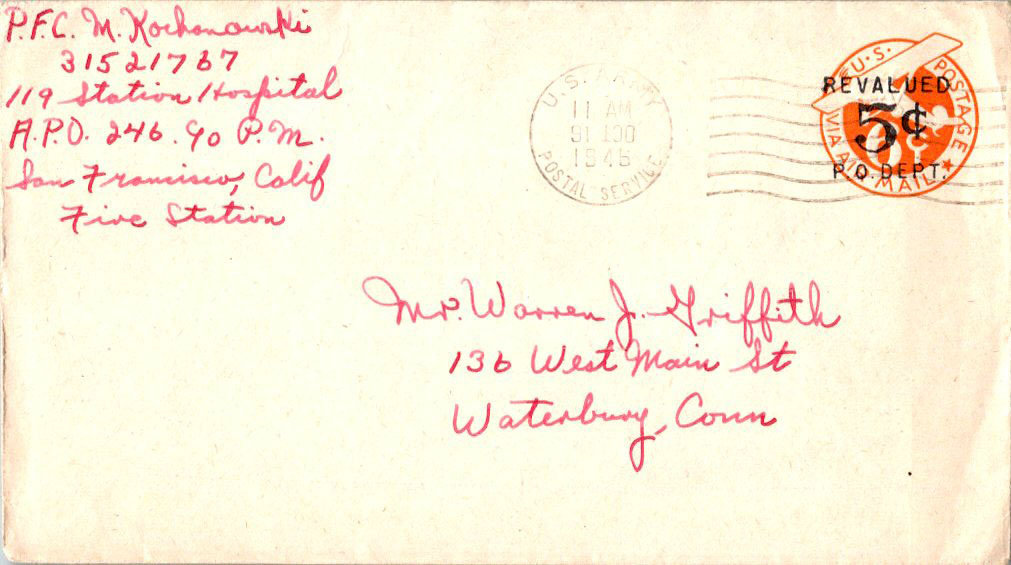 P.F.C. M. Kochanowski
31521767
119 Station Hospital
A.P.O. 246. 90 P.M.
San Francisco, Calif
Five Station
U.S. ARMY
11 AM
1946
POSTAL SERVICE
U.S. POSTAGE
REVALUED
5¢
6¢
P.O. DEPT.
VIA AIR MAIL
Mr. Warren J. Griffith
136 West Main St
Waterbury, Conn